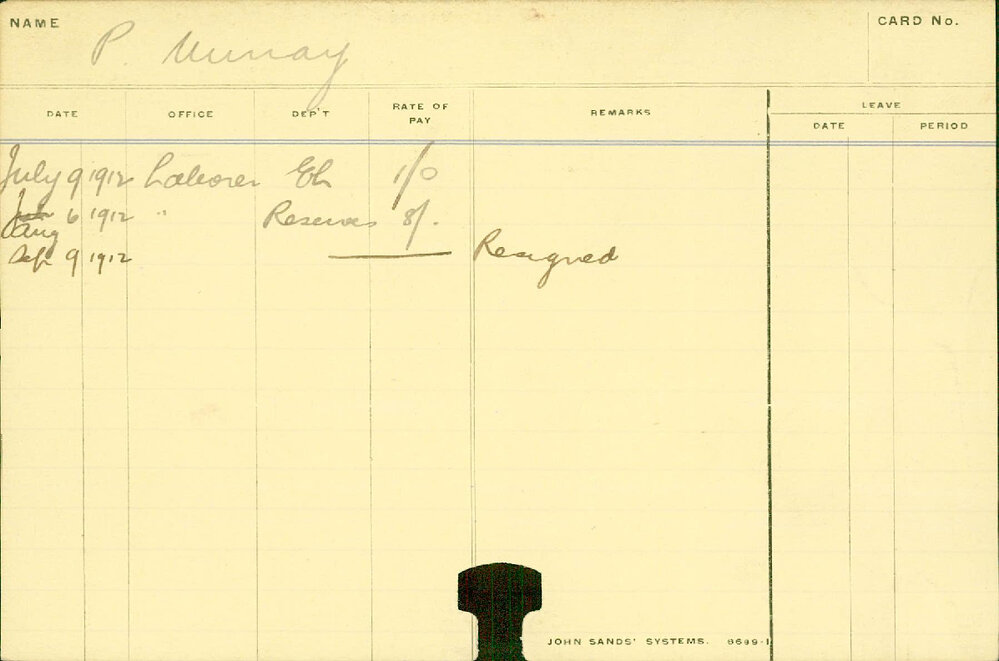 NAME P. Murray CARD No.
DATE OFFICE DEP'T RATE OF PAY REMARKS LEAVE
DATE PERIOD
July 9 1912 Laborer EL 1/0
Aug 6 1912 " Reserves 8/.
Sep 9 1912 Resigned
JOHN SANDS' SYSTEMS. 6699-1